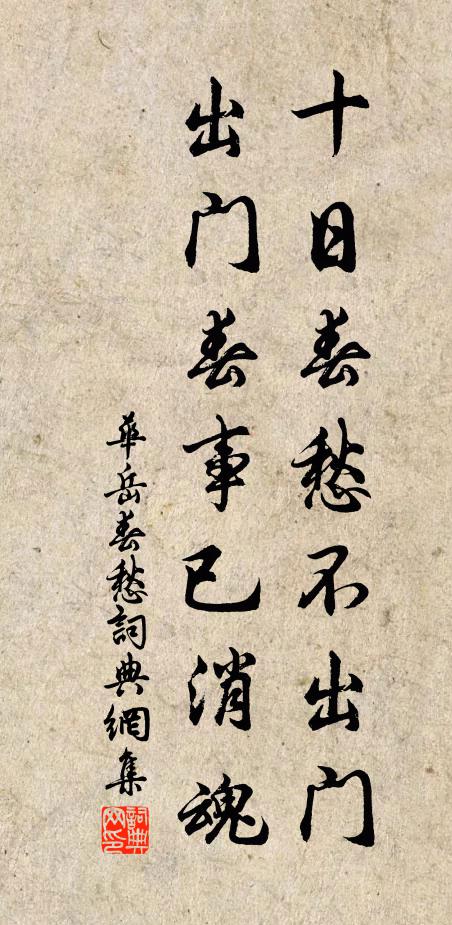 十日春愁不出門
出門春事已消魂
華岳春愁詞典網集
詞典網印